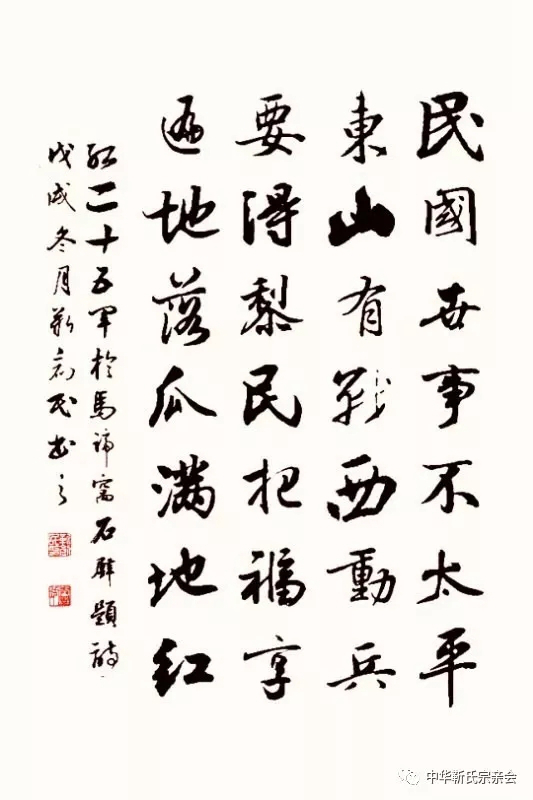 民國世事不太平
東山有戰西動兵
要得黎民把福享
遍地落瓜满地红
红二十五军於馬蹄窩石壁題詩
戊戌冬月靳
民书之
中华靳氏宗亲会